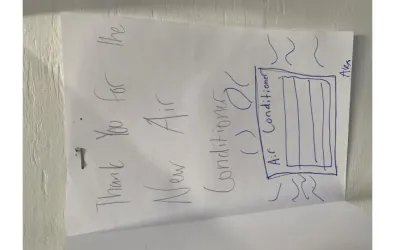 Thank You For the
New Air
Conditioner
Air Conditioner
Alex